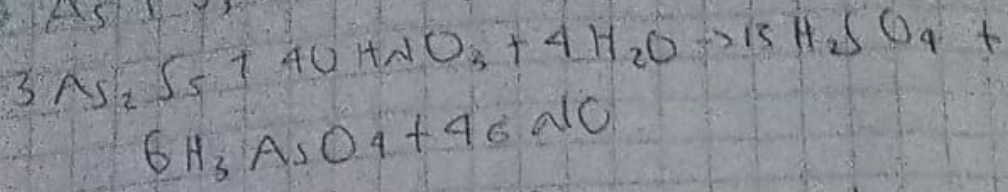 As
3 As₂S₅ + 40 HNO₃ + 4 H₂O → 15 H₂SO₄ +
6 H₃AsO₄ + 40 NO